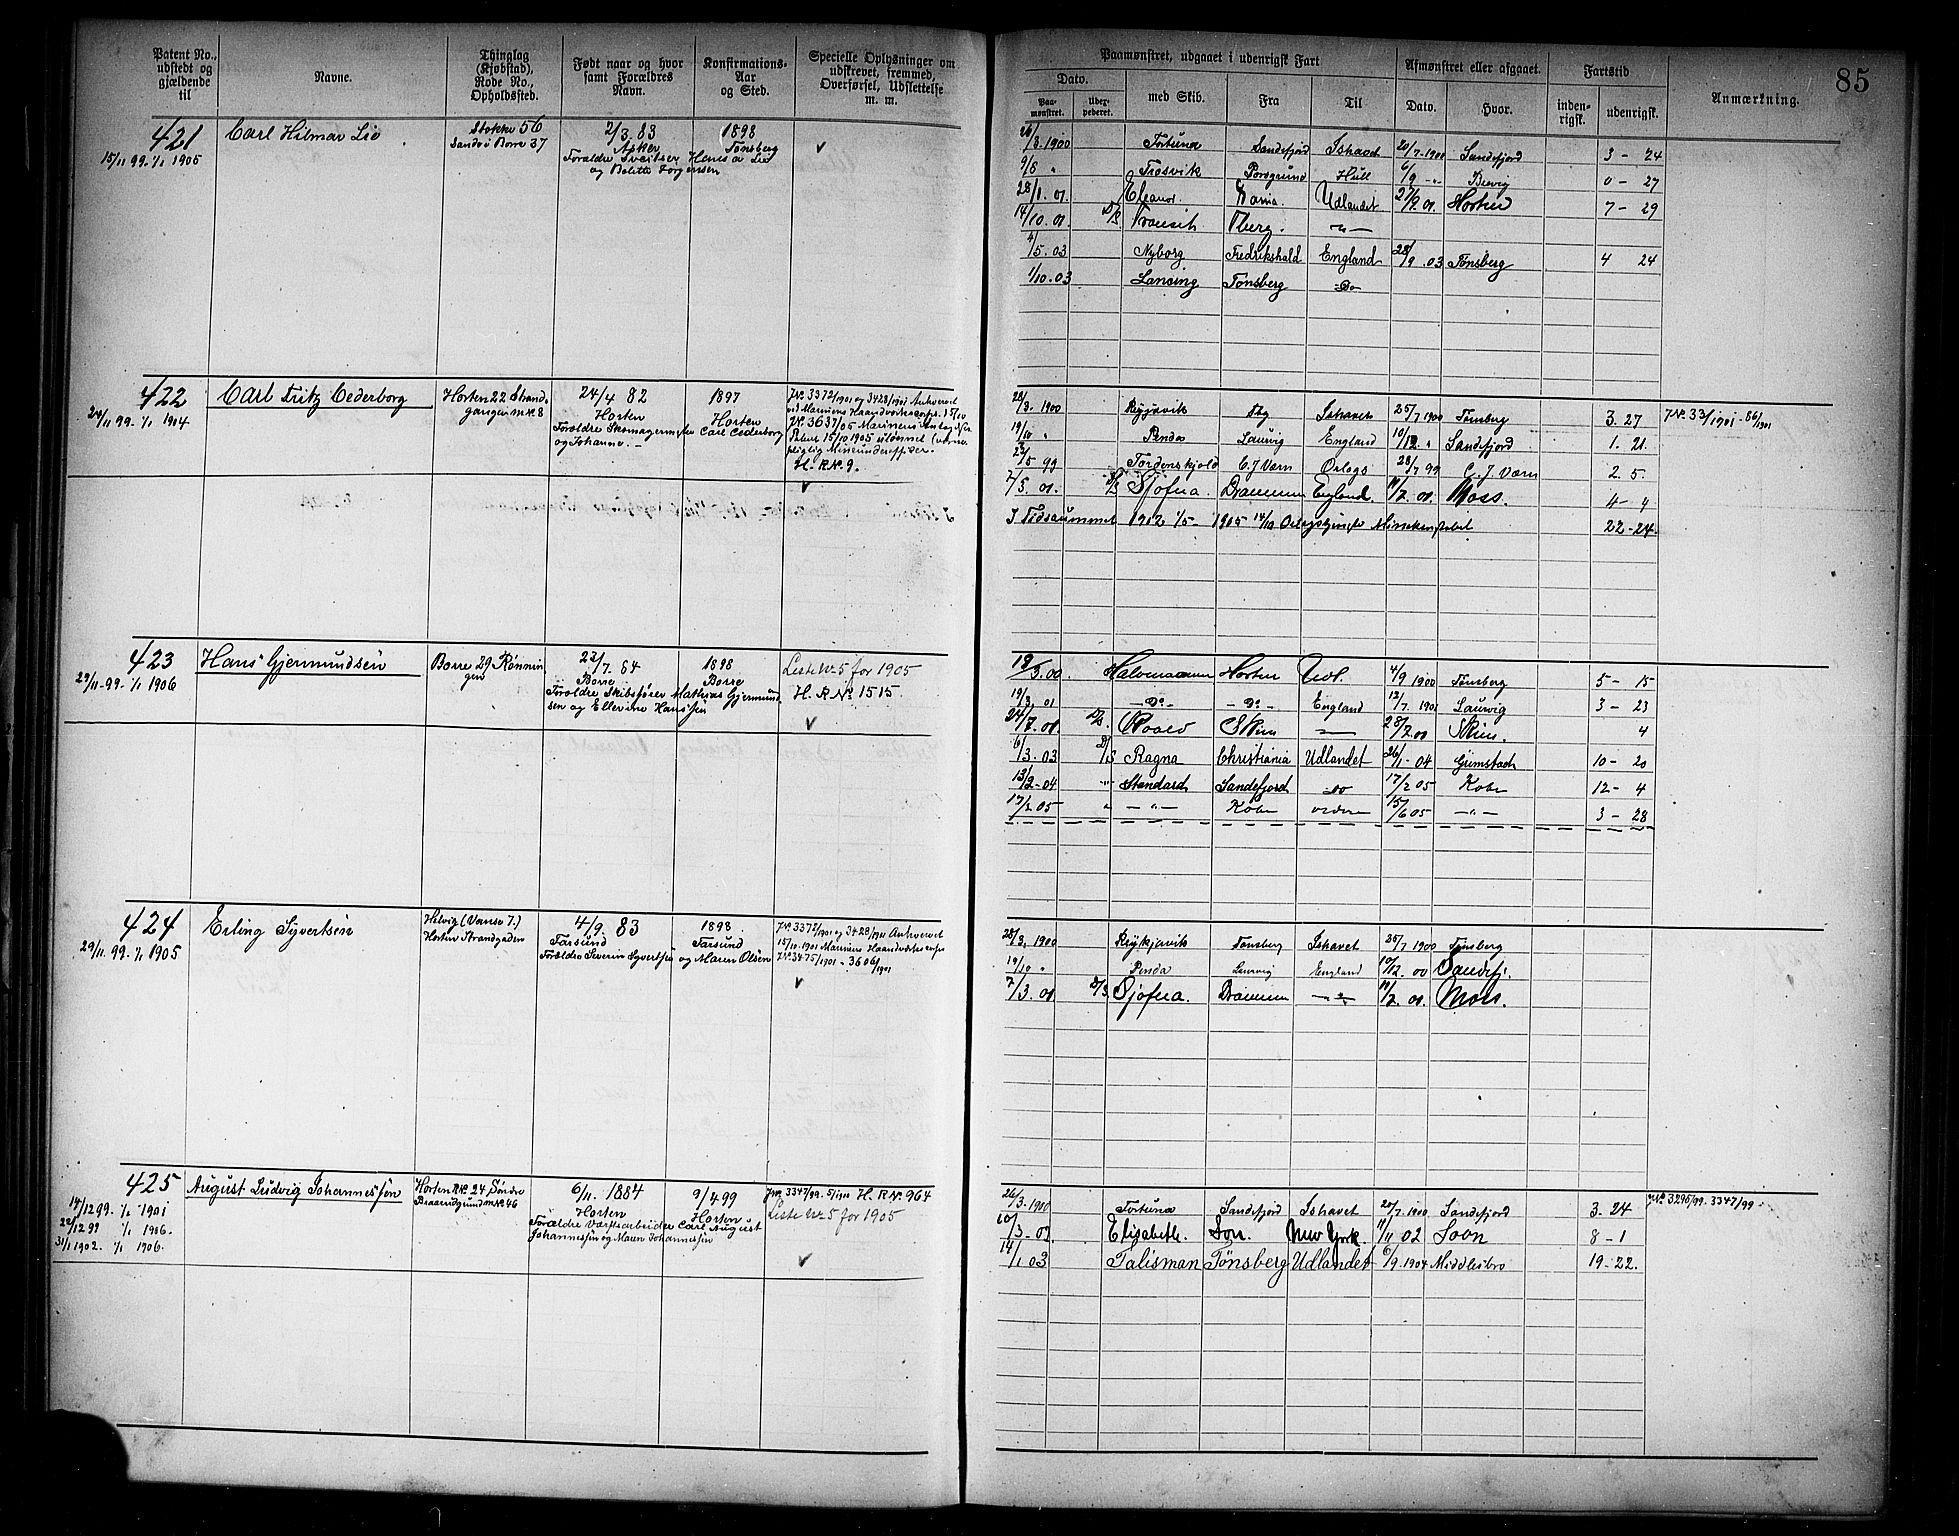 85
Patent No., udstedt og gjældende til
Navne.
Thinglag (Kjøbstad), Rode No., Opholdssted.
Født naar og hvor samt Forældres Navn.
Konfirmations-Aar og Sted.
Specielle Oplysninger om udskrevet, fremmed, Overførsel, Udslettelse m. m.
Paamønstret, udgaaet i udenrigsk Fart
Dato.
Paamønstret.
med Skib.
Fra
Til
Afmønstret eller afgaaet.
Dato.
Hvor.
Fartstid
indenrigsk.
udenrigsk.
Anmærkning.
421
15/11 99. 1/1 1905
Carl Hilmar Lie
Stokke 56
Sande i Borre 37
2/3. 83
Asker
Forældre Sveitser Hans a Lie
og Bolette Jørgensen
1898
Tønsberg
26/3. 1900 Fortuna Sandefjord Ishavet 20/7. 1900 Sandefjord 3 - 24
9/8 " Frosvik Porsgrund Hull 6/9 - " - Brevig 0 - 27
28/1. 01. Eleanor. Udlandet 27/9. 01. Horten 7 - 29
14/10. 01 Transit - " -
4/5. 03 Nyborg Fredrikshald England 28/9. 03 Tønsberg 4 24
1/10. 03 Lancing Tønsberg - Do -
422
24/11 99. 1/1 1904
Carl Fritz Cederborg
Horten 22 Strand-
gangen m. No. 8
24/4 82
Horten
Forældre Skomagermester Carl Cederborg
og Johanne. -
1897
Horten
J.No. 3372/1901 og 3428/1901 Anhvervet
ved Marinens Haandværkscorps 15/10
J.No. 3637/05 Marinens
15/10 1905 utlærnet (værne-
pligtig Mineunderofficer.
H. R.No. 9.
28/3. 1900 Reykjavik Tbg Ishavet 25/7. 1900 Tønsberg 3. 27 J.No. 33/1901 - 86/1901
19/10 " Penda Laurvig England 10/12. " Sandefjord 1. 21.
23/5 99 Tordenskjold C. J. Værn Orlogs 28/7 99 C. J. Værn 2. 5.
7/3. 01. Sjøfna. Drammen England. 11/7. 01. Moss. 4 - 4
I Tidsrummet 1902 1/5 - 1905 14/10 22 - 24.
423
29/11 - 99 - 1/1 1906
Hans Gjermundsen
Borre 29 Rønnin
gen
23/7. 84
Borre
Forældre Skibsfører Mathias Gjermund-
sen og Ellevine Hanssen
1898
Borre
Liste No. 5 for 1905
H. R.No. 1515
19/3. 00. Halvmaanen Horten Udl. 4/9 1900 Tønsberg 5 - 15
19/3. 01 - Do - - Do - England 12/7. 1901 Laurvig 3 - 23
24/7. 01. Roald Skien 28/7. 01 Skien. 4
6/3. 03 Ragna Christiania Udlandet 26/1 - 04 Grimstad 10 - 20
13/2 - 04 Standard Sandefjord - Do 17/2 05 Kobe 12 - 4
17/2 05 " - " - Kobe ordre 15/6 05 - " - 3 - 28
424
29/11. 99. 1/1 1905
Erling Syvertsen
Helvig (Vanse 7.)
Horten Strandgaden
4/9. 83
Farsund
Forældre Severin Syvertsen og Maren Olsen
1898
Farsund
J.No. 3372/1901 og 3428/1901 Anhvervet
15/10. 1901 Marinens Haandværkscorps
J.No. 3475/1901 - 3606/1901
28/3. 1900 Reykjavik Tønsberg Ishavet 25/7 1900 Tønsberg
19/10 " Penda Laurvig England 10/12. 00 Sandefj.
7/3. 01 Sjøfna. Drammen - " - 11/7. 01. Moss.
425
14/12 99. 1/1 1901
22/12 99 1/1 1906.
31/1 1902. 1/1 1906.
August Ludvig Johannessen
Horten R.No. 24 Søndre
Braarudgrund m. No. 46
6/11. 1884
Horten
Forældre Værftsarbeider Carl August
Johannessen og Maren Johannessen
9/4 99
Horten
J.No. 3347/99. 5/1901 H. R.No. 964
Liste No. 5 for 1905
26/3. 1900 Fortuna Sandefjord Ishavet 20/7. 1900 Sandefjord 3. 24 J.No. 3295/99. 3347/99
10/3 - 02 Elisabeth. Son. New York. 11/11 02 Soon 8 - 1
14/1 03 Talisman Tønsberg Udlandet 6/9. 1904 Middlesbro 19 - 22.